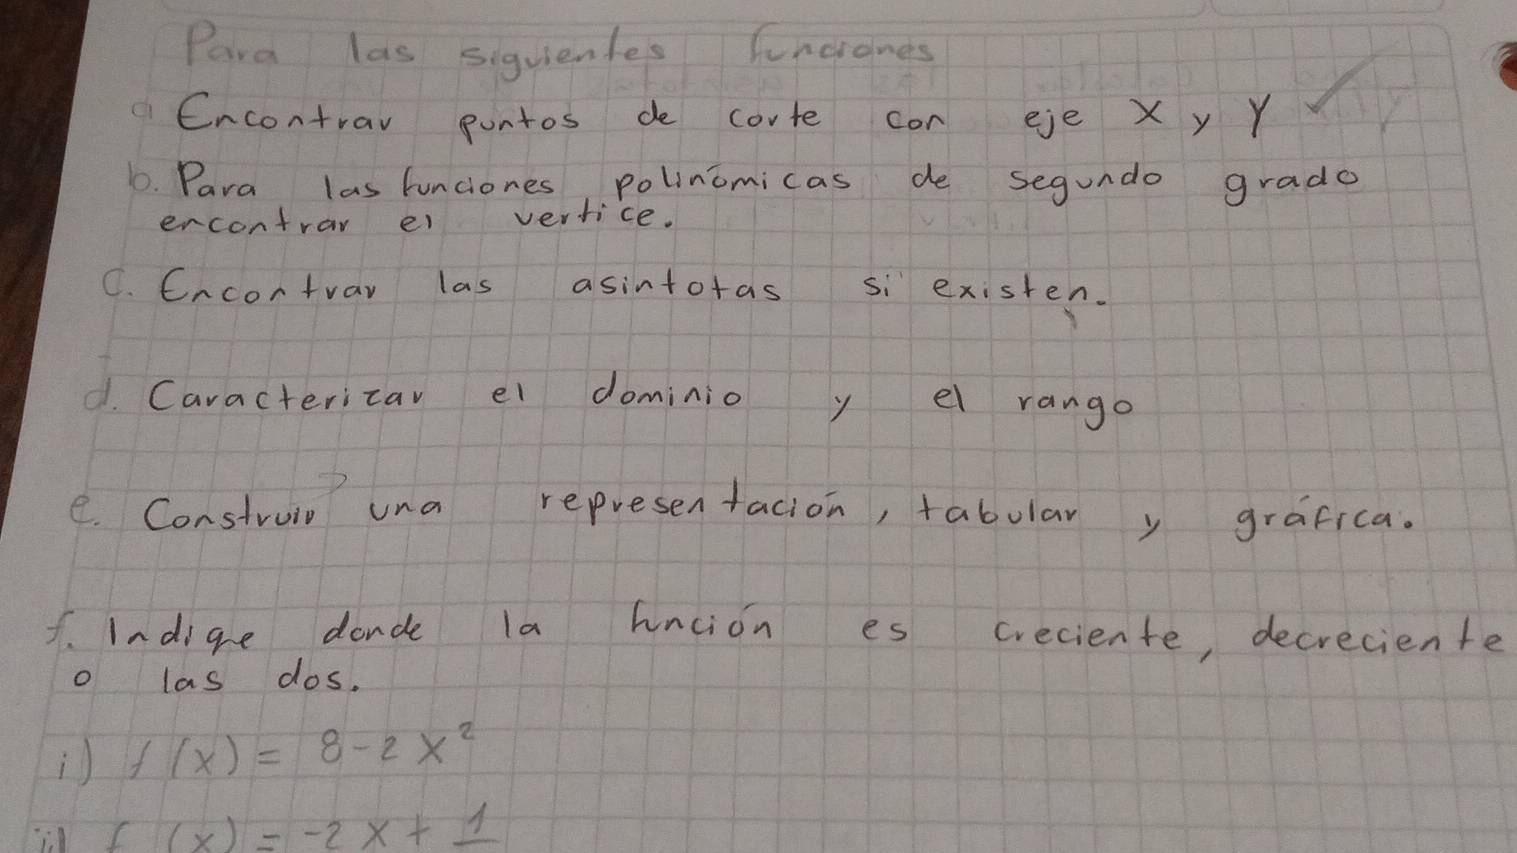 Para las siguientes funciones
a Encontrar puntos de corte con eje X y Y ✓
b. Para las funciones polinómicas de segundo grado
encontrar el vertice.
C. Encontrar las asintotas si existen.
d. Caracterizar el dominio y el rango
e. Construir una representación, tabular y gráfica.
f. Indique donde la función es creciente, decreciente
o las dos.
i) f(x) = 8-2x²
ii) f(x) = -2x + 1